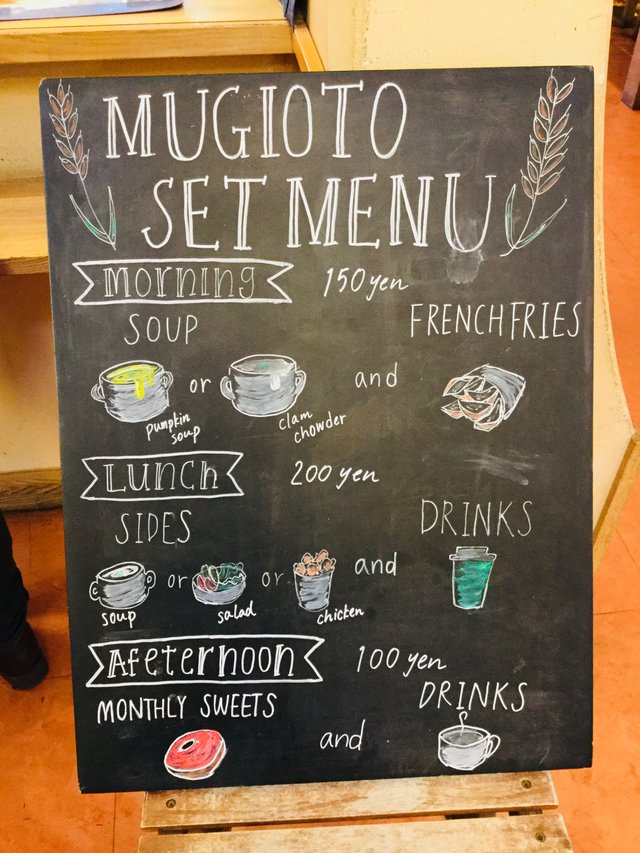 MUGIOTO
SET MENU
Morning 150 yen
SOUP FRENCH FRIES
or and
pumpkin soup clam chowder
Lunch 200 yen
SIDES DRINKS
or or and
soup salad chicken
Afeternoon 100 yen
MONTHLY SWEETS DRINKS
and